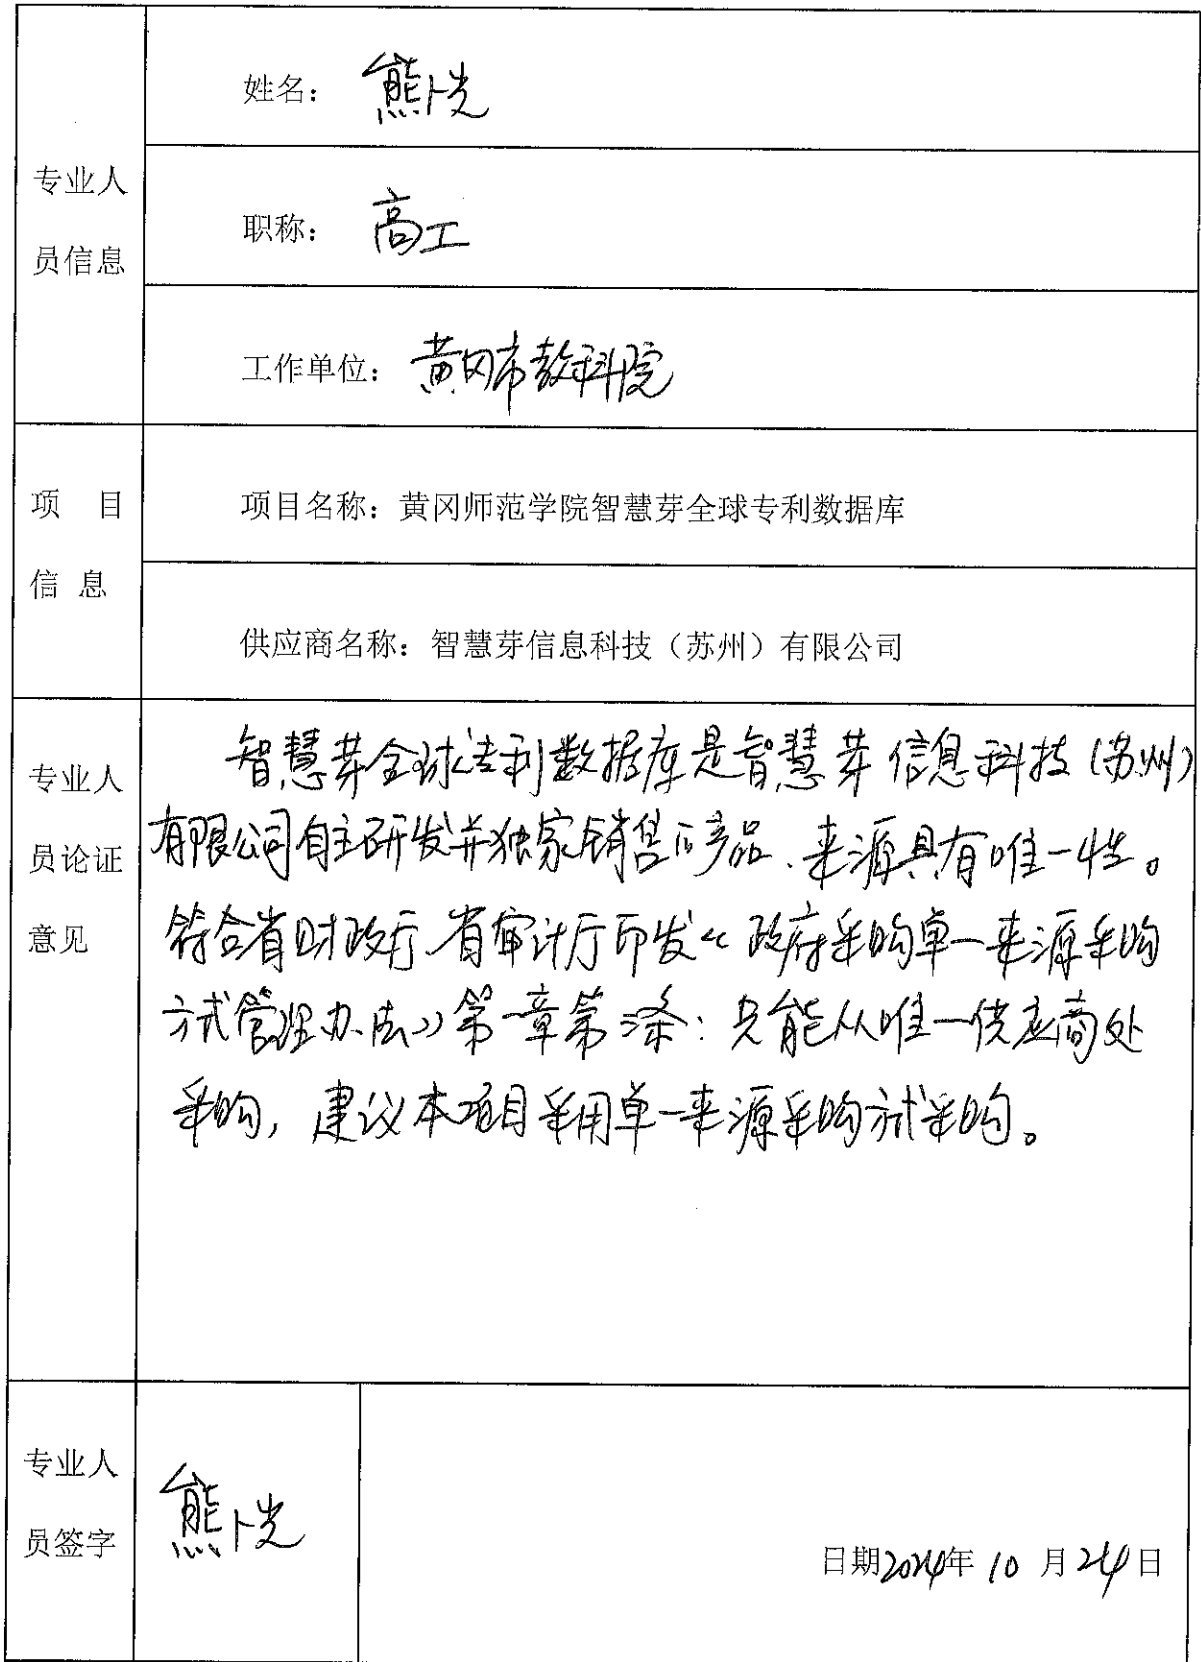 专业人
员信息
姓名：熊恍
职称：高工
工作单位：黄冈市教科院
项 目
信 息
项目名称：黄冈师范学院智慧芽全球专利数据库
供应商名称：智慧芽信息科技（苏州）有限公司
专业人
员论证
意见
智慧芽全球专利数据库是智慧芽信息科技(苏州)
有限公司自主研发并独家销售的产品、来源具有唯一性。
符合省财政厅、省审计厅印发《政府采购单一来源采购
方式管理办法》第一章第二条：只能从唯一供应商处
采购，建议本项目采用单一来源采购方式采购。
专业人
员签字
熊恍
日期2024年10月24日